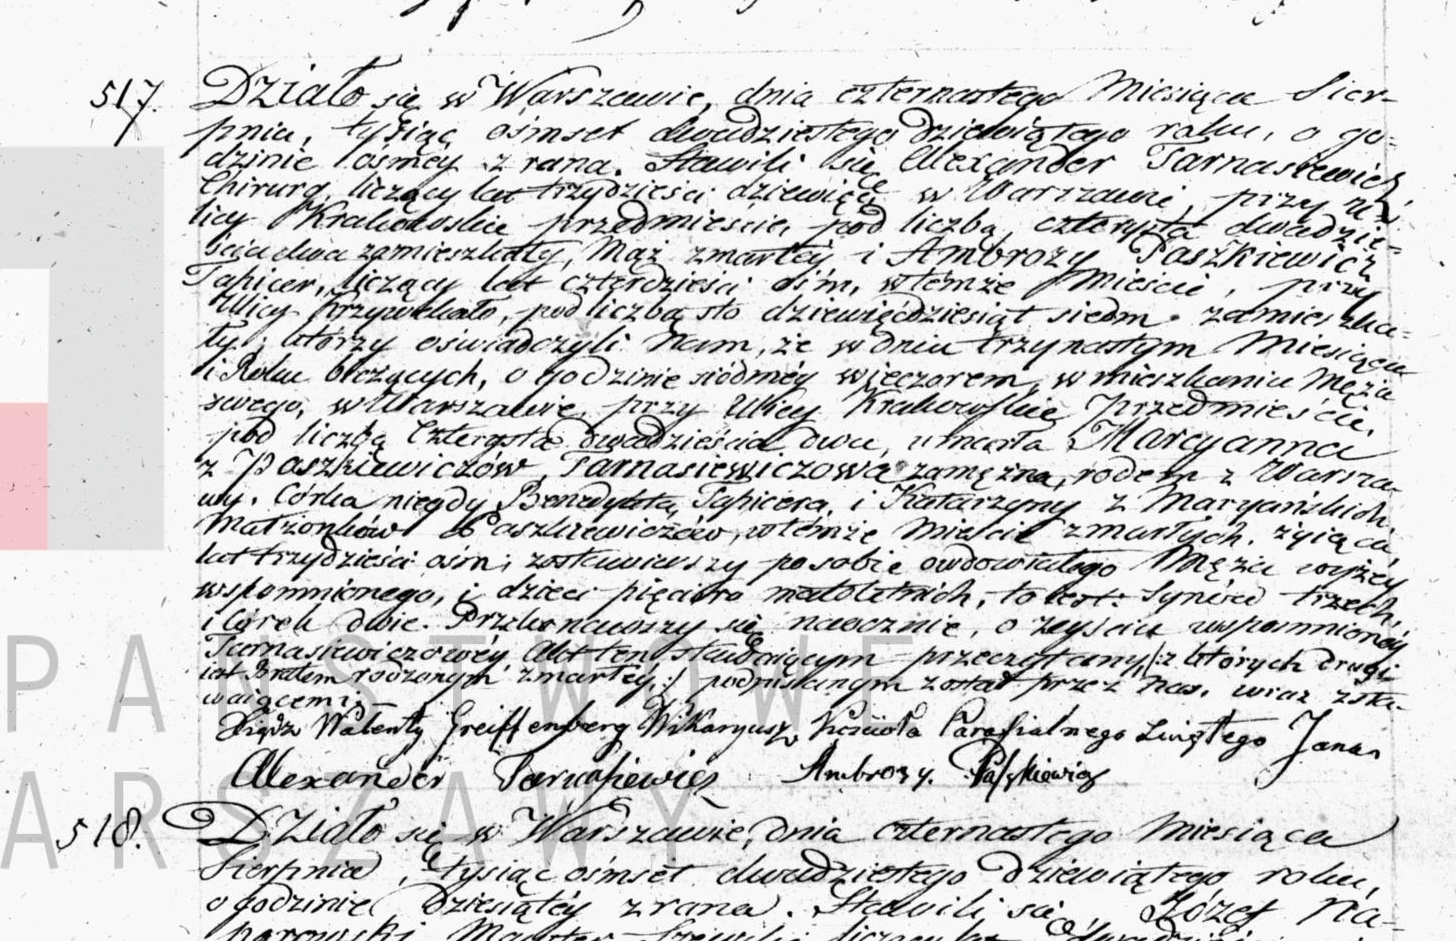 517.
Działo się w Warszawie, dnia czternastego Miesiąca Sier-
pnia, tysiąc ośmset dwudziestego dziewiątego roku, o go-
dzinie ósmey z rana. Stawili się Alexander Tarnasiewicz
Chirurg, liczący lat trzydzieści dziewięć w Warszawie, przy u-
licy Krakowskie przedmieście, pod liczbą czterysta dwadzie-
ścia dwa zamieszkały, Mąż zmarłey i Ambroży Paszkiewicz
Tapicer, liczący lat czterdzieści ośm, wtemże Mieście, przy
Ulicy Krzywekoło, pod liczbą sto dziewięćdziesiąt siedm zamieszka-
ły; którzy oświadczyli Nam, że w dniu trzynastym Miesiąca
i Roku bieżących, o godzinie siódmey wieczorem, w mieszkaniu Męża
swego, w Warszawie, przy Ulicy Krakowskie Przedmieście,
pod liczbą Czterysta dwadzieścia dwa, umarła Maryanna
z Paszkiewiczów Tarnasiewiczowa zamężna, rodem z Warsza-
wy. Córka niegdy Benedykta, Tapicera, i Katarzyny z Maryańskich
Małżonków Paszkiewiczów, wtemże Mieście zmarłych, żyiąca
lat trzydzieści ośm; zostawiwszy po sobie owdowiałego Męża wyżey
wspomnionego, i dzieci pięcioro małoletnich, to iest: Synów trzech,
i Córek dwie. Przekonawszy się naocznie, o zeyściu wspomnioney
Tarnasiewiczowéy, Akt ten stawaiącym przeczytany, /:z których drugi
iest Bratem rodzonym zmarłey:/ podpisanym został przez Nas, wraz z sta-
waiącemi.
Xiądz Walenty Greiffenberg Wikaryusz Kościoła Parafialnego Świętego Jana
Alexander Tarnasiewicz Ambroży Paszkiewicz
518.
Działo się w Warszawie, dnia czternastego Miesiąca
Sierpnia, tysiąc ośmset dwudziestego dziewiątego roku,
o godzinie dziesiątéy z rana. Stawili się, Józef Na-
PAŃSTWOWE
ARSZAWY